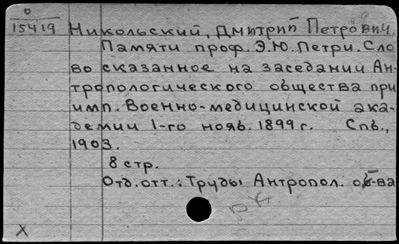 0
15419
Никольский, Дмитрий Петрович.
Памяти проф. Э.Ю. Петри. Сло
во сказанное на заседании Ан-
тропологического общества при
имп. Военно-медицинской ака-
демии 1-го нояб. 1899 г. Спб.,
1903.
8 стр.
Отд. отт.: Труды Антропол. об-ва
X